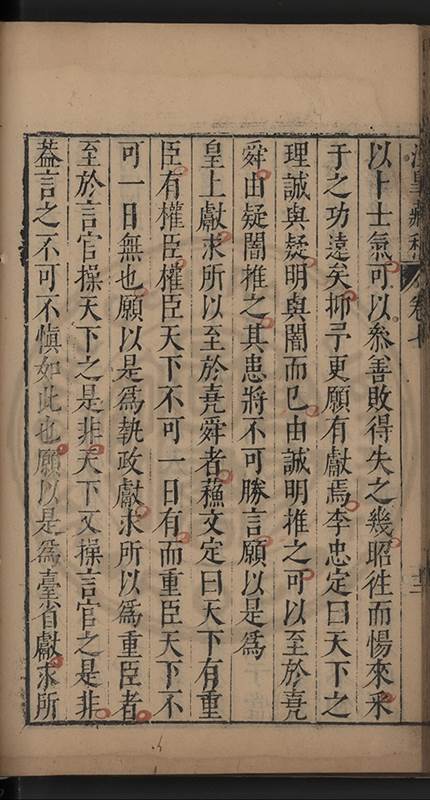 以卜士氣可以叅善敗得失之幾昭徃而惕來采
于之功遠矣抑予更願有獻焉李忠定曰天下之
理誠與疑明與闇而已由誠明推之可以至於堯
舜由疑闇推之其患將不可勝言願以是爲
皇上獻求所以至於堯舜者蘇文定曰天下有重
臣有權臣權臣天下不可一日有而重臣天下不
可一日無也願以是爲執政獻求所以爲重臣者
至於言官操天下之是非天下又操言官之是非
葢言之不可不慎如此也願以是爲臺省獻求所